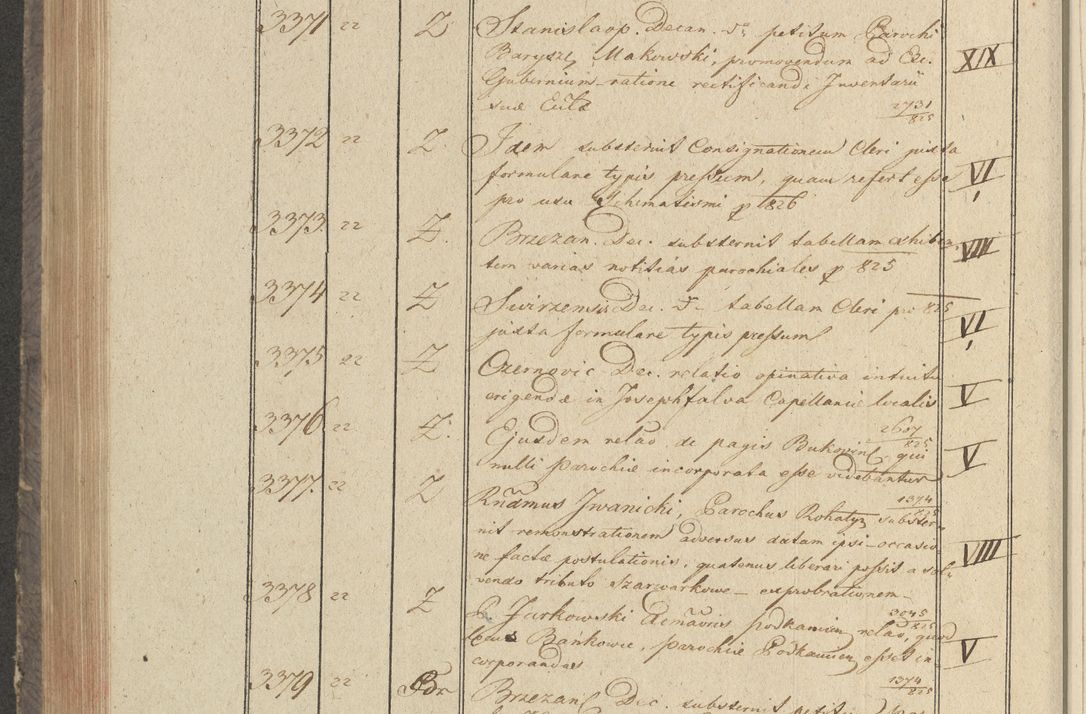 3371 22 Z. Stanislaop. Decan. petitum Parochi
Barysz, Makowski, promovendum ad Exc. XIX
Gubernium ratione rectificandi Inventarii
suae Eccla 2731/825
3372 22 Z. Idem substernit Consignationem Cleri juxta
formulare typis pressum, quam refert esse VI
pro usu Schematismi p 1826
3373. 22 Z. Brzezan. Dec. substernit tabellam exhiben
tem varias notitias parochiales p 825 VIII
3374 22 Z Swirzensis Dec. tabellam Cleri pro 825
juxta formulare typis pressum VI
3375 22 Z Czernovic Dec. relatio opinativa intuitu
erigendae in Josephfalva Capellaniae localis V
2607/825
3376 22 Z. Ejusdem relao de pagis Bukovin qui
nulli parochiae incorporata esse videbantur V
1374/825
3377. 22 Z Rndmus Iwanicki, Parochus Rohatyn subster-
nit remonstrationem adversus datam ipsi occasio
ne factae postulationis, quatenus liberari possit a sol- VIII
vendo tributo Szarwarkowe exprobrationem
3045/825
3378 22 Z P. Jurkowski Podkamien relao, quod
locus Bańkowce, parochiae Podkamien esset in V
corporandus
1374/825
3379 22 Br Brzezan Dec. substernit